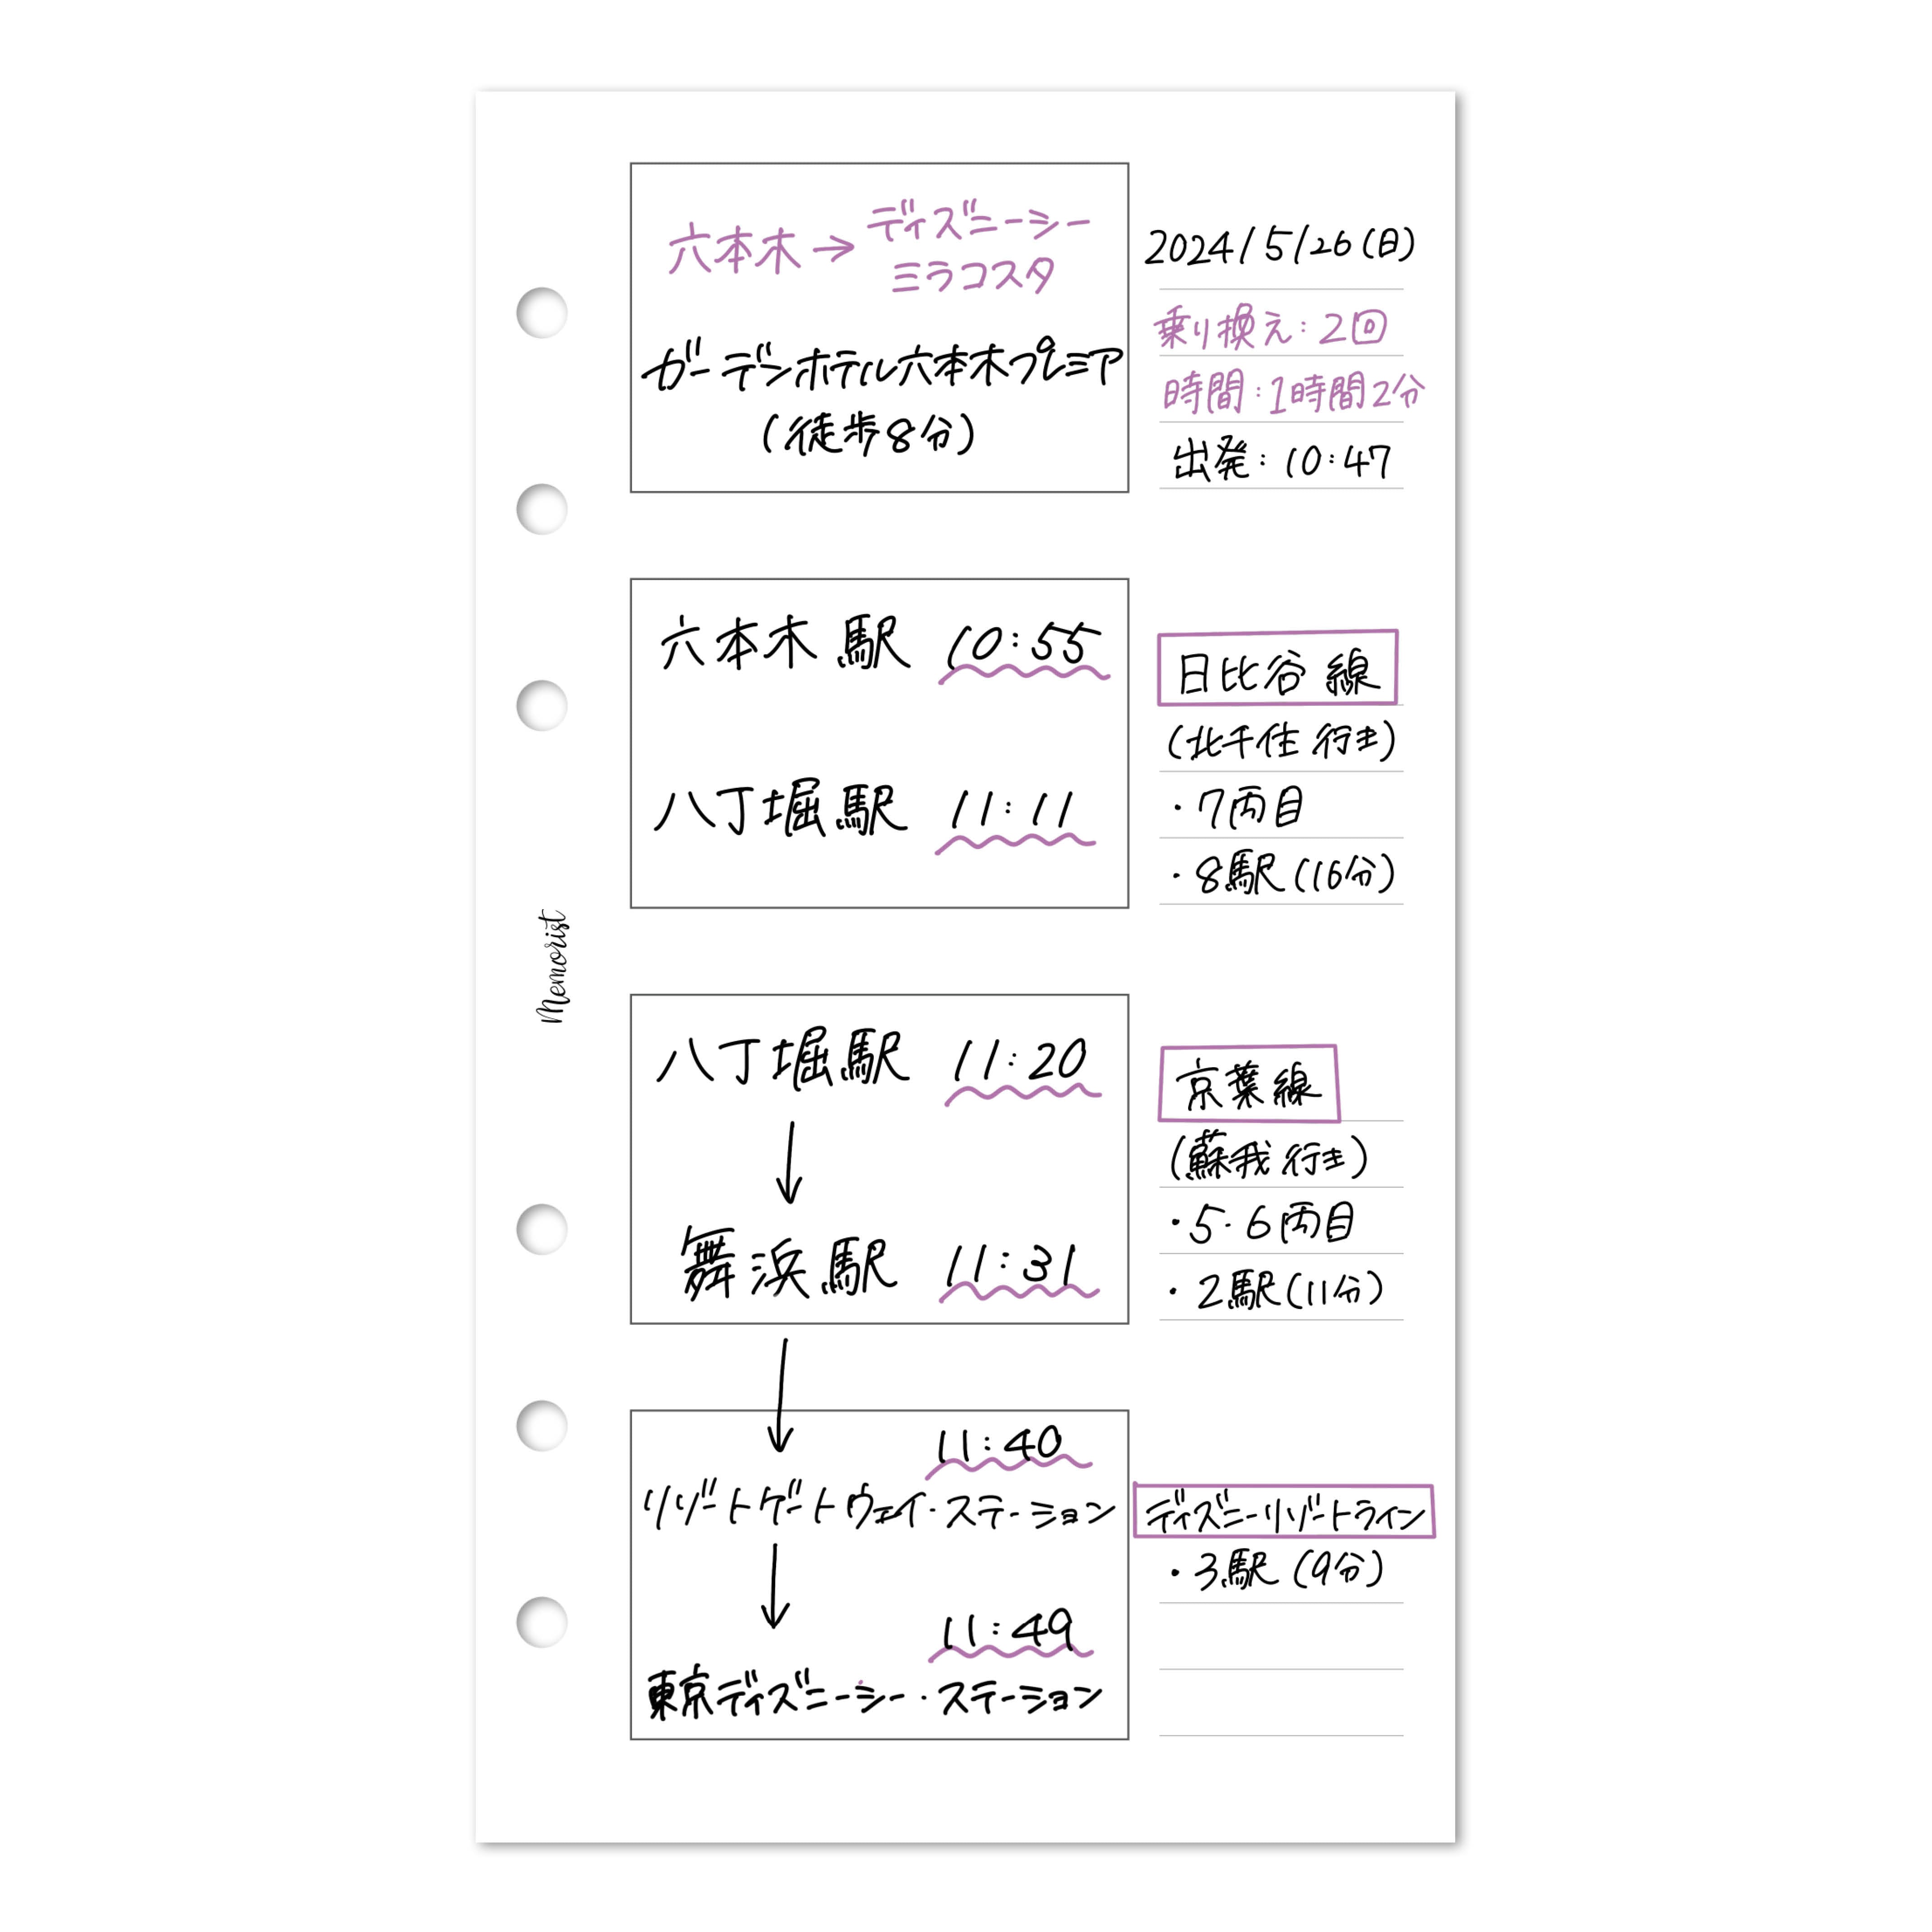 六本木→ディズニーシー
ミラコスタ
ガーデンホテル六本木プレミア
(徒歩8分)
2024/5/26(日)
乗り換え:2回
時間:1時間2分
出発:10:47
六本木駅 10:55
八丁堀駅 11:11
日比谷線
(北千住行き)
・7両目
・8駅(16分)
八丁堀駅 11:20
↓
舞浜駅 11:31
京葉線
(蘇我行き)
・5・6両目
・2駅(11分)
↓
11:40
リゾートゲートウェイ・ステーション
↓
11:49
東京ディズニーシー・ステーション
ディズニーリゾートライン
・3駅(9分)
Memorist